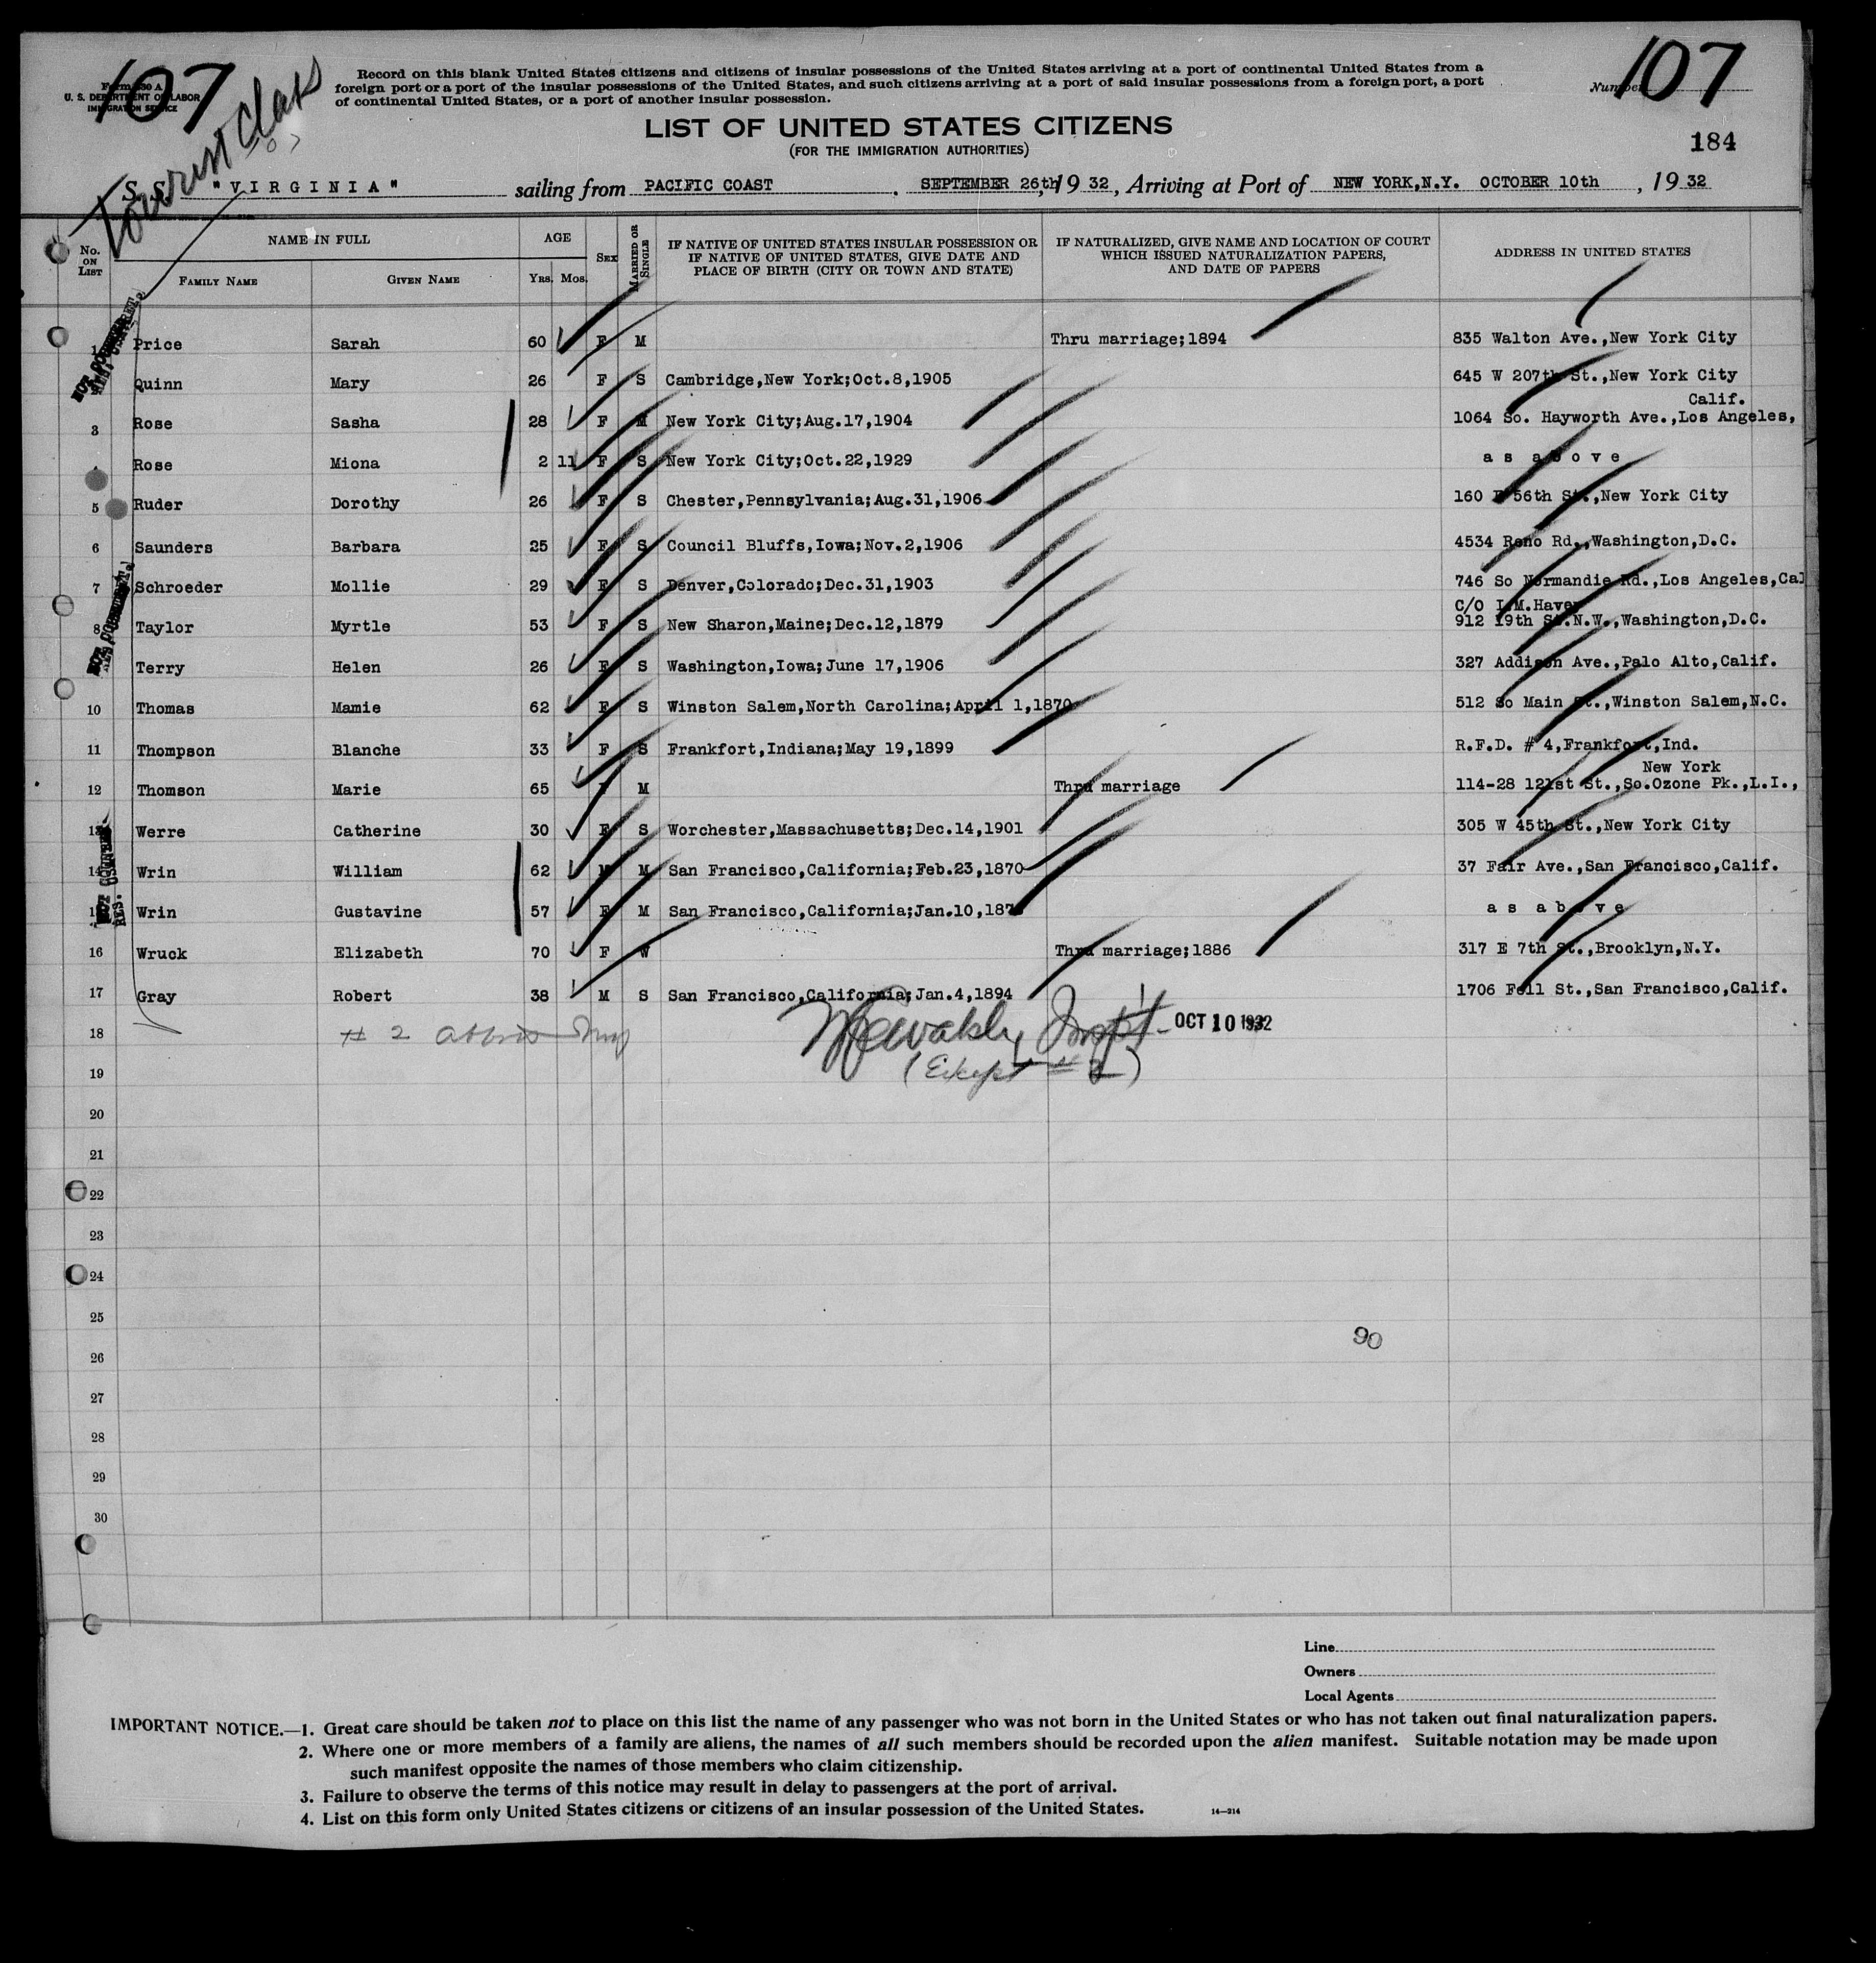 107
107
Tourist Class
Form 630 A
U. S. DEPARTMENT OF LABOR
IMMIGRATION SERVICE
Record on this blank United States citizens and citizens of insular possessions of the United States arriving at a port of continental United States from a
foreign port or a port of the insular possessions of the United States, and such citizens arriving at a port of said insular possessions from a foreign port, a port
of continental United States, or a port of another insular possession.
Number
LIST OF UNITED STATES CITIZENS
(FOR THE IMMIGRATION AUTHORITIES)
184
S. S. "VIRGINIA" sailing from PACIFIC COAST, SEPTEMBER 26th, 19 32, Arriving at Port of NEW YORK,N.Y. OCTOBER 10th, 19 32
No. ON LIST NAME IN FULL AGE SEX MARRIED OR SINGLE IF NATIVE OF UNITED STATES INSULAR POSSESSION OR IF NATIVE OF UNITED STATES, GIVE DATE AND PLACE OF BIRTH (CITY OR TOWN AND STATE) IF NATURALIZED, GIVE NAME AND LOCATION OF COURT WHICH ISSUED NATURALIZATION PAPERS, AND DATE OF PAPERS ADDRESS IN UNITED STATES
FAMILY NAME GIVEN NAME YRS. MOS.
1 Price Sarah 60 F M Thru marriage;1894 835 Walton Ave.,New York City
Quinn Mary 26 F S Cambridge,New York;Oct.8,1905 645 W 207th St.,New York City
Calif.
3 Rose Sasha 28 F M New York City;Aug.17,1904 1064 So. Hayworth Ave.,Los Angeles,
Rose Miona 2 11 F S New York City;Oct.22,1929 as above
5 Ruder Dorothy 26 F S Chester,Pennsylvania;Aug.31,1906 160 E 56th St.,New York City
6 Saunders Barbara 25 F S Council Bluffs,Iowa;Nov.2,1906 4534 Reno Rd.,Washington,D.C.
7 Schroeder Mollie 29 F S Denver,Colorado;Dec.31,1903 746 So Normandie Rd.,Los Angeles,Cal
C/O I.M.Haven
8 Taylor Myrtle 53 F S New Sharon,Maine;Dec.12,1879 912 19th St.N.W.,Washington,D.C.
Terry Helen 26 F S Washington,Iowa;June 17,1906 327 Addison Ave.,Palo Alto,Calif.
10 Thomas Mamie 62 F S Winston Salem,North Carolina;April 1,1870 512 So Main St.,Winston Salem,N.C.
11 Thompson Blanche 33 F S Frankfort,Indiana;May 19,1899 R.F.D. # 4,Frankfort,Ind.
New York
12 Thomson Marie 65 F M Thru marriage 114-28 121st St.,So.Ozone Pk.,L.I.,
13 Werre Catherine 30 F S Worchester,Massachusetts;Dec.14,1901 305 W 45th St.,New York City
14 Wrin William 62 M M San Francisco,California;Feb.23,1870 37 Fair Ave.,San Francisco,Calif.
15 Wrin Gustavine 57 F M San Francisco,California;Jan.10,187 as above
16 Wruck Elizabeth 70 F W Thru marriage;1886 317 E 7th St.,Brooklyn,N.Y.
17 Gray Robert 38 M S San Francisco,California;Jan.4,1894 1706 Fell St.,San Francisco,Calif.
18 # 2 OCT 10 1932
19 (Except # 2)
20
21
22
23
24
25
90
26
27
28
29
30
Line
Owners
Local Agents
IMPORTANT NOTICE.—1. Great care should be taken not to place on this list the name of any passenger who was not born in the United States or who has not taken out final naturalization papers.
2. Where one or more members of a family are aliens, the names of all such members should be recorded upon the alien manifest. Suitable notation may be made upon
such manifest opposite the names of those members who claim citizenship.
3. Failure to observe the terms of this notice may result in delay to passengers at the port of arrival.
4. List on this form only United States citizens or citizens of an insular possession of the United States.
14—214